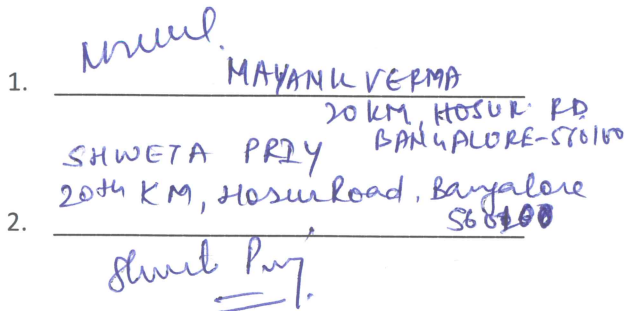 1. MAYANK VERMA
20 KM, HOSUR RD
BANGALORE-560100
SHWETA PRIY
20th KM, Hosur Road, Bangalore
560100
2.
Shweta Priy